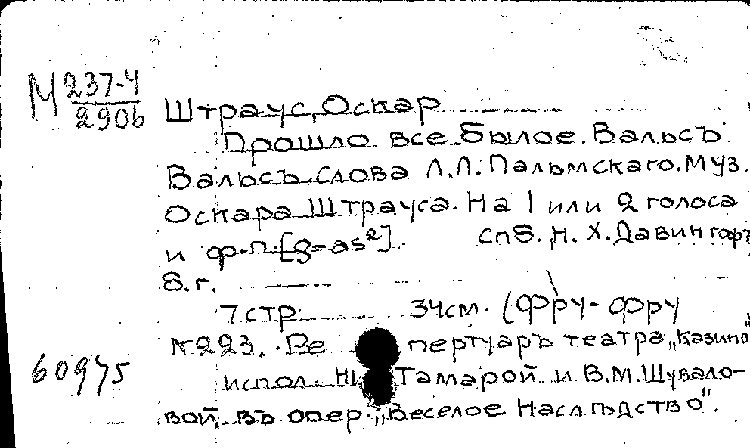 М 237-4
2906
Штраус, Оскар
Прошло все былое. Вальсъ
Вальсъ. слова Л.Л. Пальмскаго. Муз.
Оскара Штрауса. На 1 или 2 голоса
и ф-п. [g-as²]. спб. Н. Х. Давингофъ
б.г.
7 стр. 34см. (Фру-фру
№ 223. Ре пертуаръ театра „Казино"
60975
испол. Н. Тамарой и В.М. Шувало-
вой въ опер. „Веселое Наслѣдство".